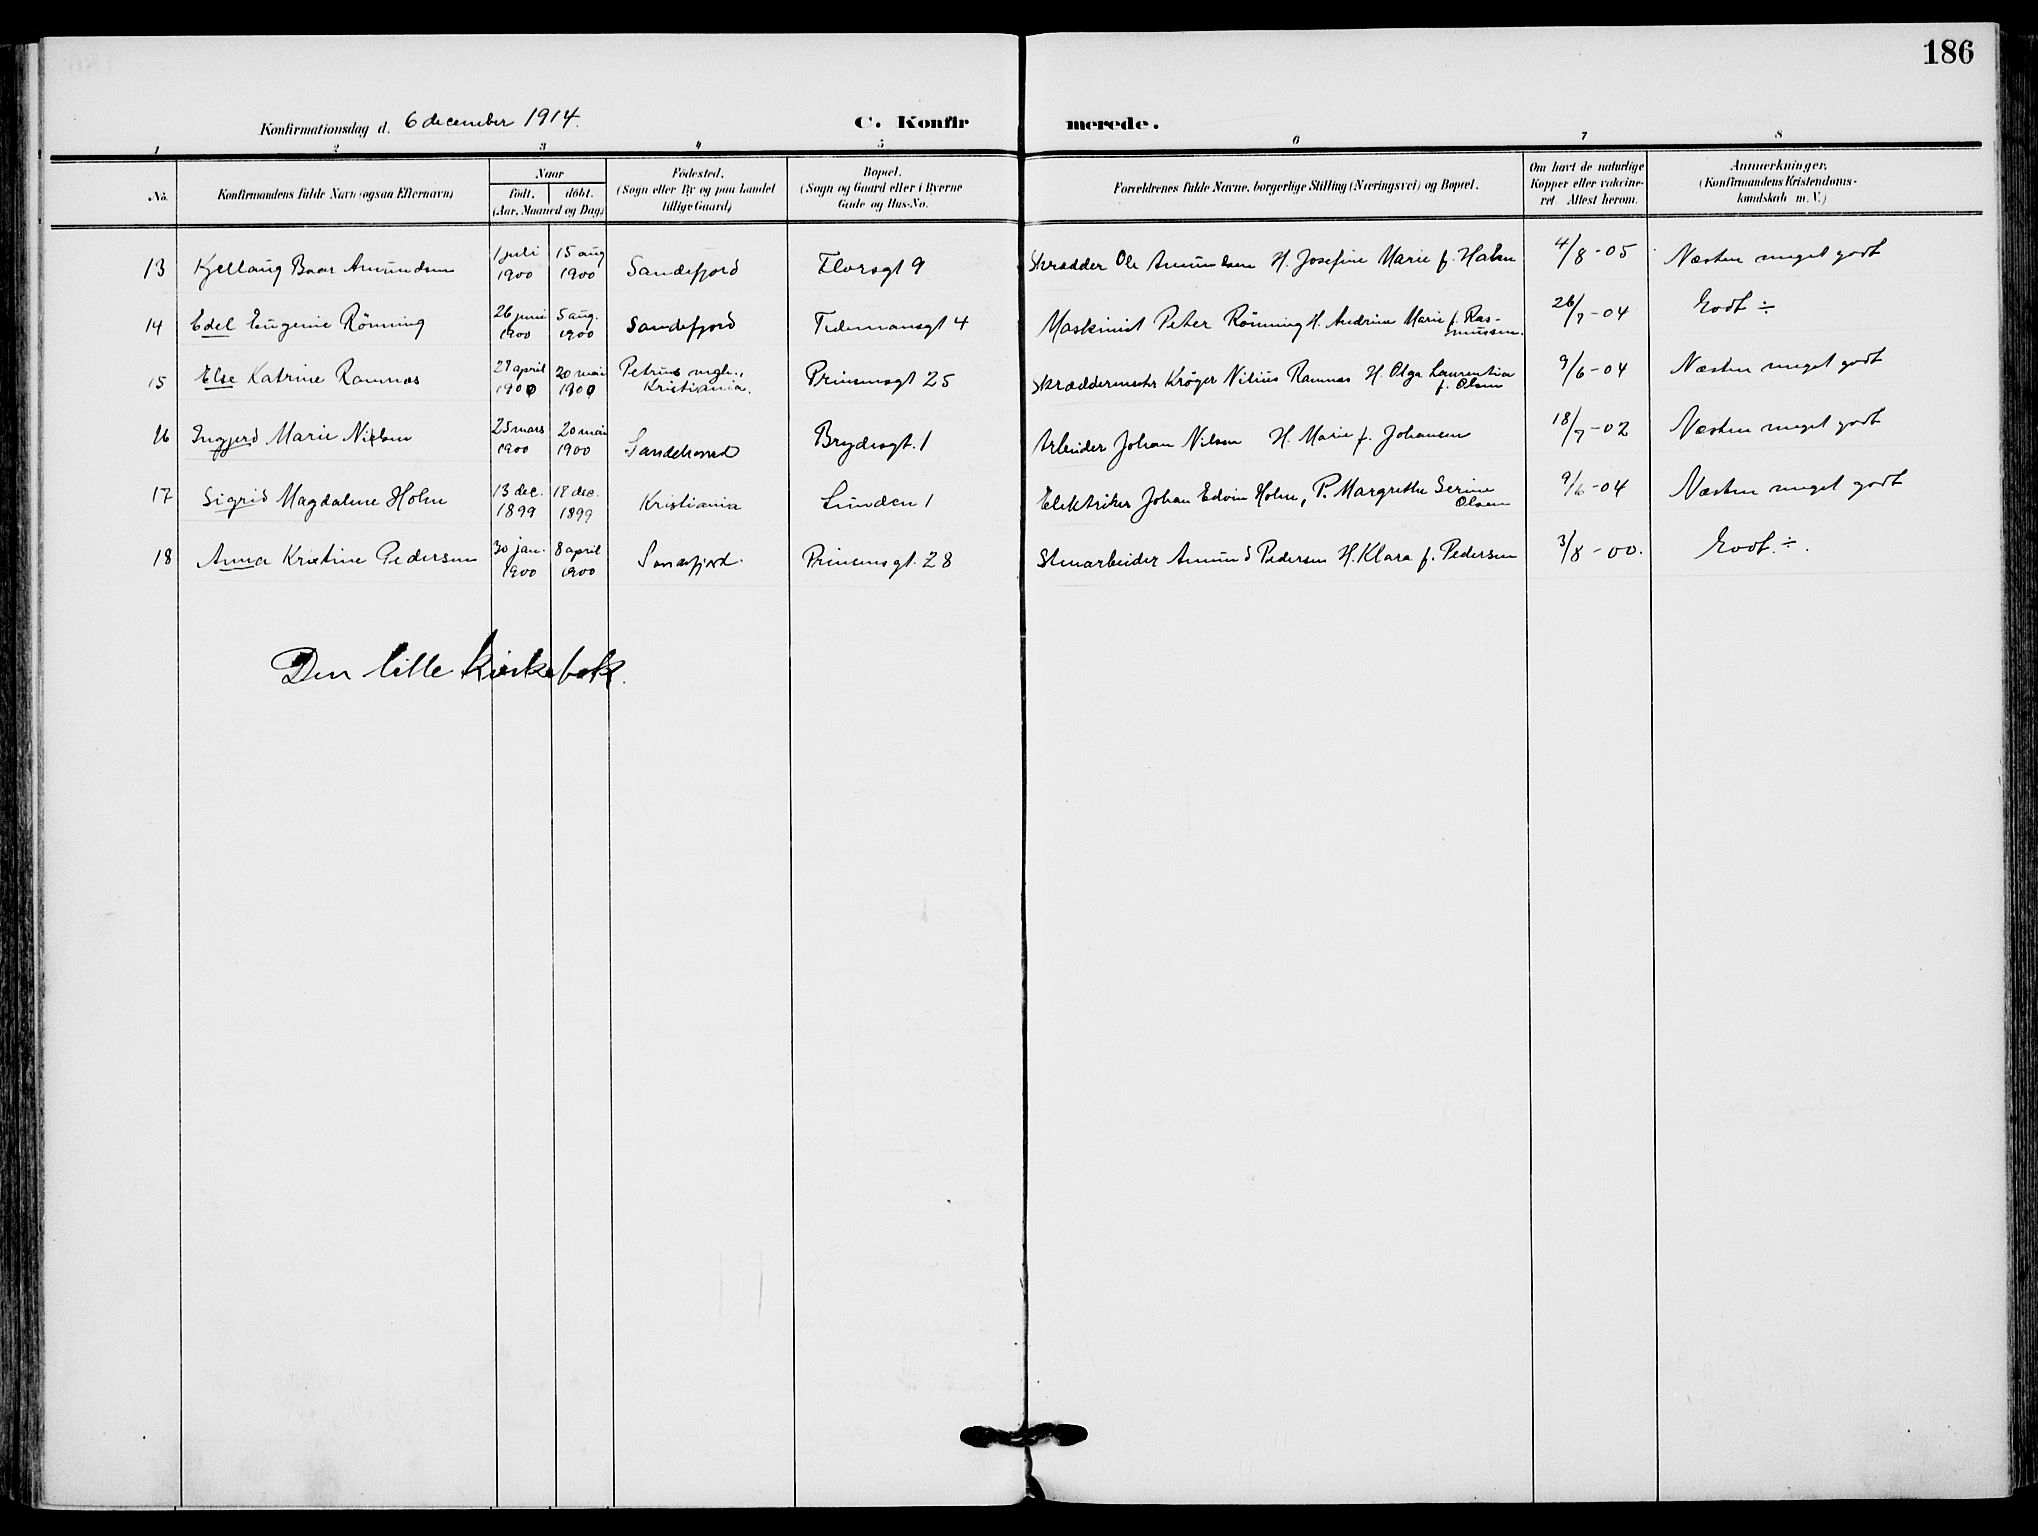 186
Konfirmationsdag d. 6 december 1914.
C. Konfirmerede.
1 2 3 4 5 6 7 8
No. Konfirmandens fulde Navn (ogsaa Efternavn) Naar født. døbt. (Aar, Maaned og Dag) Fødested. (Sogn eller By og paa Landet tillige Gaard) Bopæl. (Sogn og Gaard eller i Byerne Gade og Hus-No. Forældrenes fulde Navne, borgerlige Stilling (Næringsvei) og Bopæl. Om havt de naturlige Kopper eller vaccineret Attest herom. Anmærkninger, (Konfirmandens Kristendomskundskab m. V.)
13 Kjellaug Baar Amundsen 1 juli 1900 15 aug 1900 Sandefjord Florsgt 9 Skrædder Ole Amundsen H. Josefine Marie f. 4/8-05 Næsten meget godt
14 Edel Eugenie Rönning 26 juni 1900 5 aug. 1900 Sandefjord Tidemansgt 4 Maskinist Peter Rönning H. Andrine Marie f. Rasmussen. 26/7-04 Godt ÷
15 Else Katrine Ramnæs 29 april 1900 20 mai 1900 Petrus mgh., Kristiania. Prinsensgt 25 Skræddermester Kröger Nilius Ramnæs H. Olga Laurentia f. Olsen 9/6-04 Næsten meget godt
16 Ingjerd Marie Nielsen 25 mars 1900 20 mai 1900 Sandeherred Brydesgt. 1 Arbeider Johan Nilsen H. Marie f. Johansen 18/7-02 Næsten meget godt
17 Sigrid Magdalene Holm 13 dec. 1899 18 dec. 1899 Kristiania Lunden 1 Elektriker Johan Edvin Holm, P. Margrethe Serine Olsen 9/6-04 Næsten meget godt
18 Anna Kristine Pedersen 30 jan. 1900 8 april 1900 Sandefjord. Prinsensgt. 28 Stenarbeider Amund Pedersen H. Klara f. Pedersen 3/8-00. Godt. ÷.
Den lille kirkebok.